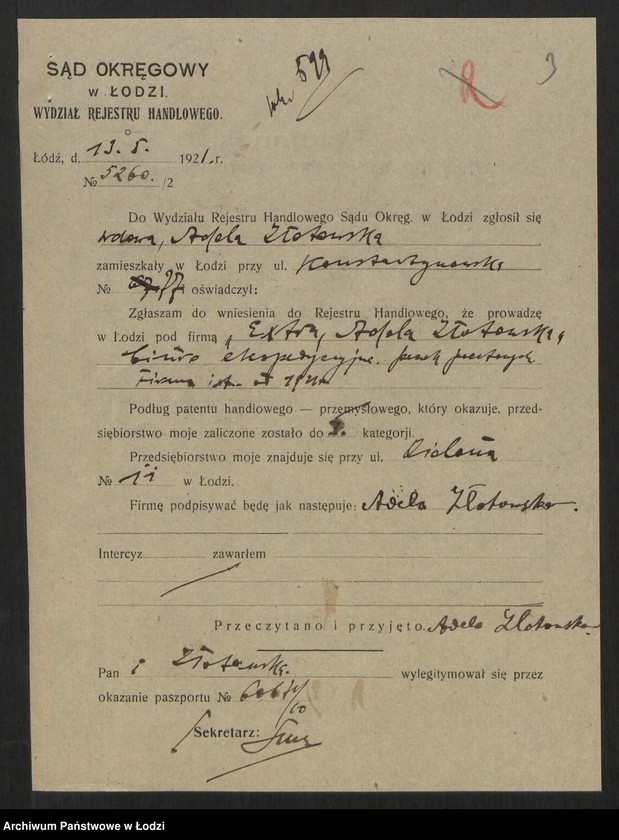 599
2
3
SĄD OKRĘGOWY
w ŁODZI.
WYDZIAŁ REJESTRU HANDLOWEGO.
Łódź, d. 13. 5. 1921. r.
№ 5260. /2
Do Wydziału Rejestru Handlowego Sądu Okręg. w Łodzi zgłosił się
wdowa, Adela Złotowska
zamieszkały w Łodzi przy ul. Konstantynowska
№ 77 oświadczył:
Zgłaszam do wniesienia do Rejestru Handlowego, że prowadzę
w Łodzi pod firmą „Extra, Adela Złotowska"
biuro ekspedycyjne paczek pocztowych
Firma ist. od
Podług patentu handlowego — przemysłowego, który okazuje, przed-
siębiorstwo moje zaliczone zostało do kategorji.
Przedsiębiorstwo moje znajduje się przy ul. Zielona
№ 11 w Łodzi.
Firmę podpisywać będę jak następuje: Adela Złotowska.
Intercyz zawarłem
Przeczytano i przyjęto. Adela Złotowska.
Pan i Złotowska wylegitymował się przez
okazanie paszportu №
Sekretarz:
Archiwum Państwowe w Łodzi